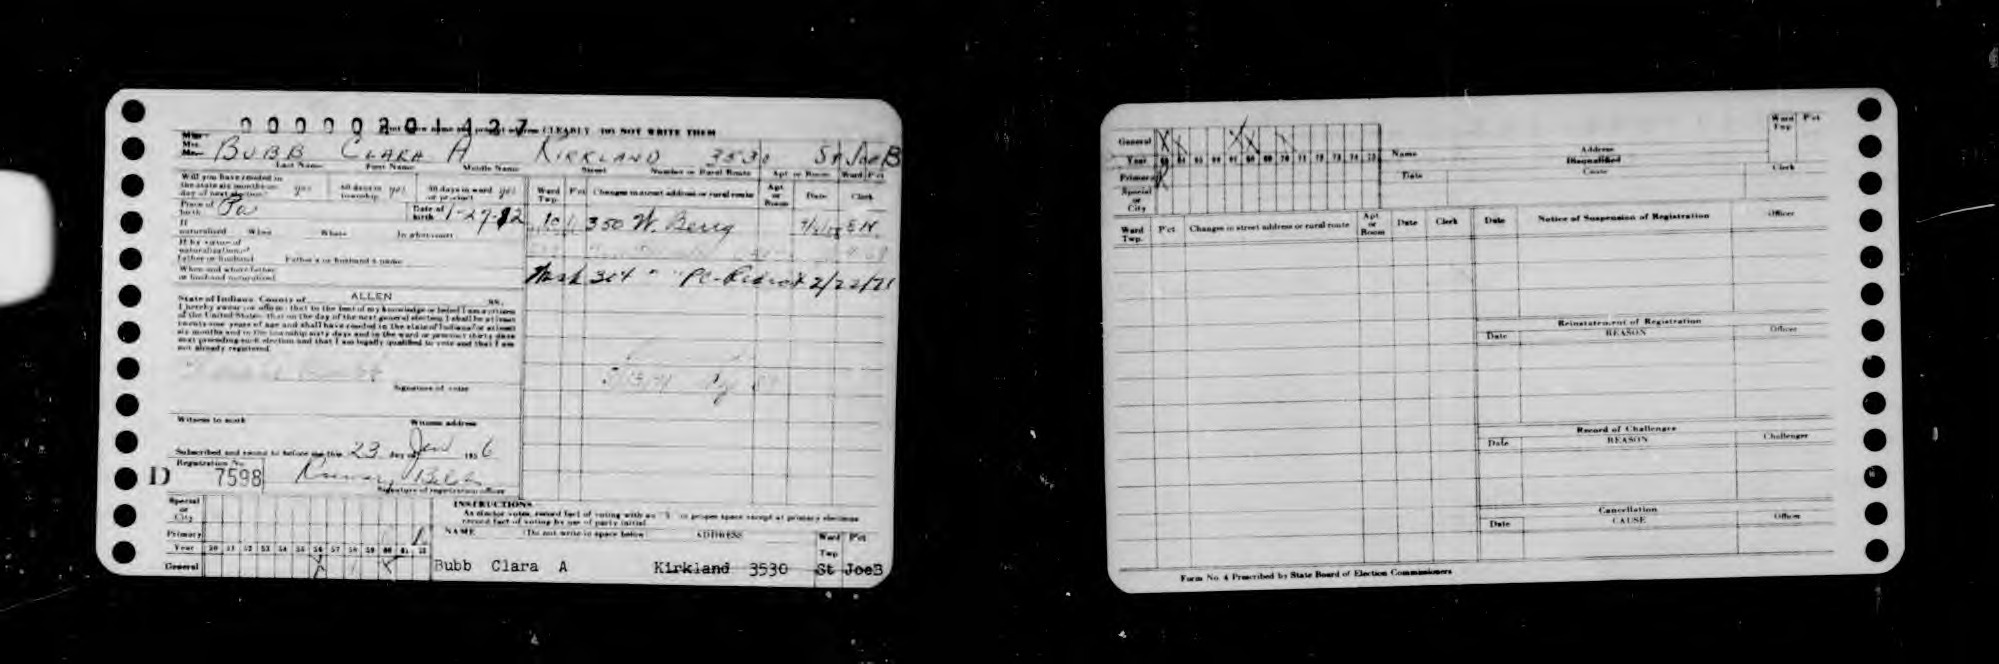 0 0 0 0 0 2 0 1 4 2 7
name and present address CLEARLY DO NOT WRITE THEM
Miss
Mrs.
Mr.
BUBB CLARA A KIRKLAND 3530 St JoeB
Last Name First Name Middle Name Street Number or Rural Route Apt or Room Ward P'ct
Will you have resided in the state six months on day of next election? yes 60 days in township yes 30 days in ward or precinct yes
Ward Twp. P'ct Changes in street address or rural route Apt or Room Date Clerk
Place of birth Pa Date of birth 1-27-12
350 W. Berry
If naturalized When Where In what court
If by virtue of naturalization of father or husband Father's or husband's name
When and where father or husband naturalized
304 " " 2/22/71
State of Indiana, County of ALLEN ss.
I hereby swear (or affirm) that to the best of my knowledge or belief I am a citizen
of the United States; that on the day of the next general election I shall be at least
twenty-one years of age and shall have resided in the state of Indiana for at least
six months and in the township sixty days and in the ward or precinct thirty days
next preceding such election and that I am legally qualified to vote and that I am
not already registered.
Signature of voter
Witness to mark Witness address
Subscribed and sworn to before me this 23 day of Jan 1956
Registration No.
D 7598
Signature of registration officer
Special or City
Primary
Year 50 51 52 53 54 55 56 57 58 59 60 61 62
General
INSTRUCTIONS
As elector votes, record fact of voting with an "X" in proper space except at primary elections
record fact of voting by use of party initial
NAME (Do not write in space below) ADDRESS Ward Twp P'ct
Bubb Clara A Kirkland 3530 St JoeB
General X X X X
Year 63 64 65 66 67 68 69 70 71 72 73 74 75
Primary
Special or City
Name Address Ward Twp. P'ct
Disqualified
Date Cause Clerk
Ward Twp. P'ct Changes in street address or rural route Apt or Room Date Clerk
Date Notice of Suspension of Registration Officer
Reinstatement of Registration
Date REASON Officer
Record of Challenges
Date REASON Challenger
Cancellation
Date CAUSE Officer
Form No. 4 Prescribed by State Board of Election Commissioners